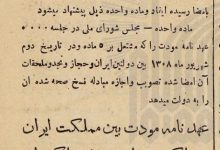 بامضا رسیده ایفاد وماده واحده ذیل پیشنهاد میشود
ماده واحده - مجلس شورای ملی در جلسه ۰۰۰۰
عهد نامه مودت را که مشتمل بر ۵ ماده ودر تاریخ دوم
شهریور ماه ۱۳۰۸ بین دولتین ایران وحجاز ونجد وملحقات
آن امضا شده تصویب واجازه مبادله نسخ صحه شده آن
را به دولت میدهد
عهد نامه مودت بین مملکت ایران